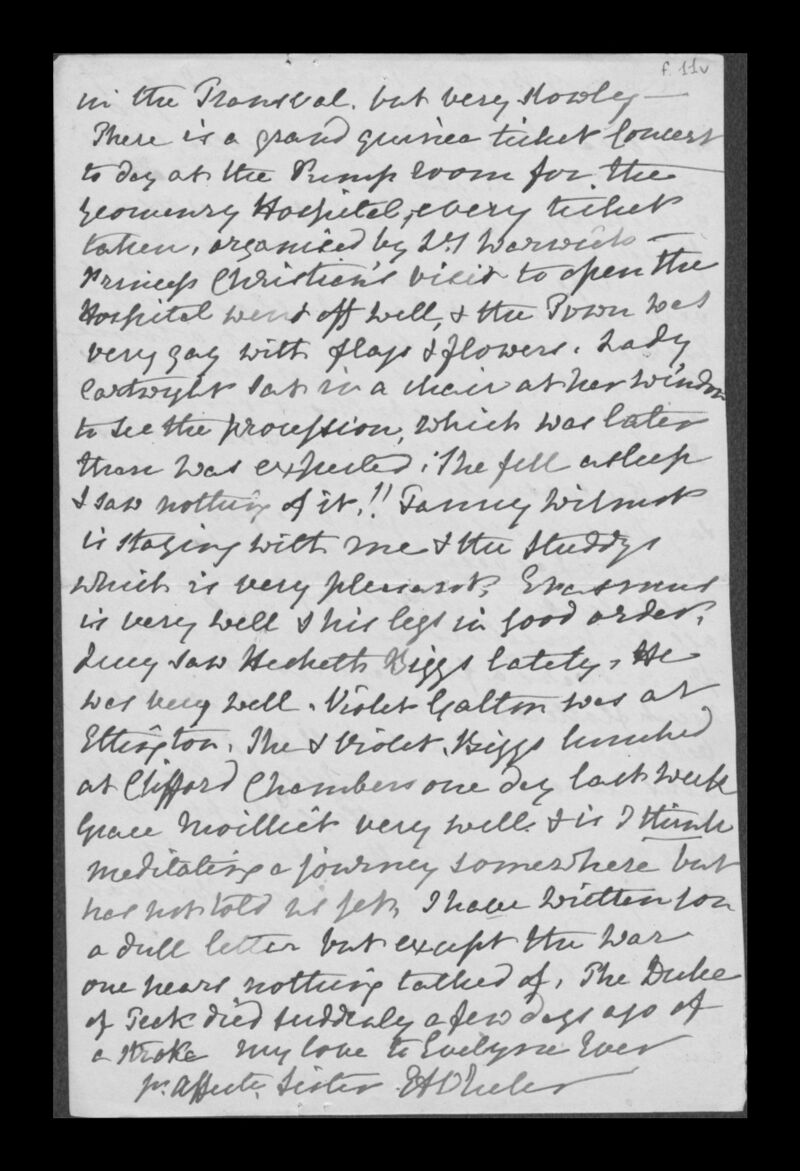 f. 11v
in the Transval. but very slowly —
There is a grand guinea ticket Concert
to day at the Pump room for the
Yeomenry Hospital, every ticket
taken, organised by Ly Warwick —
Princess Christian's visit to open the
Hospital went off well, & the Town was
very gay with flags & flowers. Lady
Cartwright sat in a chair at her window
to see the procession, which was later
than was expected. She fell asleep
& saw nothing of it,!! Fanny Wilmot
is staying with me & the Studdys
which is very pleasant, Erasmus
is very well & his legs in good order,
Lucy saw Hesketh Biggs lately, He
was very well. Violet Galton was at
Ettington, She & Violet Biggs lunched
at Clifford Chambers one day last week
Grace Moilliet very well. & is I think
meditating a journey somewhere but
has not told us yet, I have written you
a dull letter but except the War
one hears nothing talked of, The Duke
of Teck died suddenly a few days ago of
a stroke My love to Evelyne Ever
yr. Affecte. Sister E A Wheler